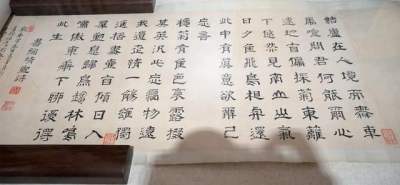 結廬在人境而無車
馬喧問君何能爾心
遠地自偏採菊東籬
下悠然見南山山氣
日夕佳飛鳥相與還
此中有真意欲辯已
忘言
秋菊有佳色裛露掇
其英汎此忘憂物遠
我遺世情一觴雖獨
進杯盡壺自傾日入
羣動息歸鳥趨林鳴
嘯傲東軒下聊復得
此生
書陶靖節詩